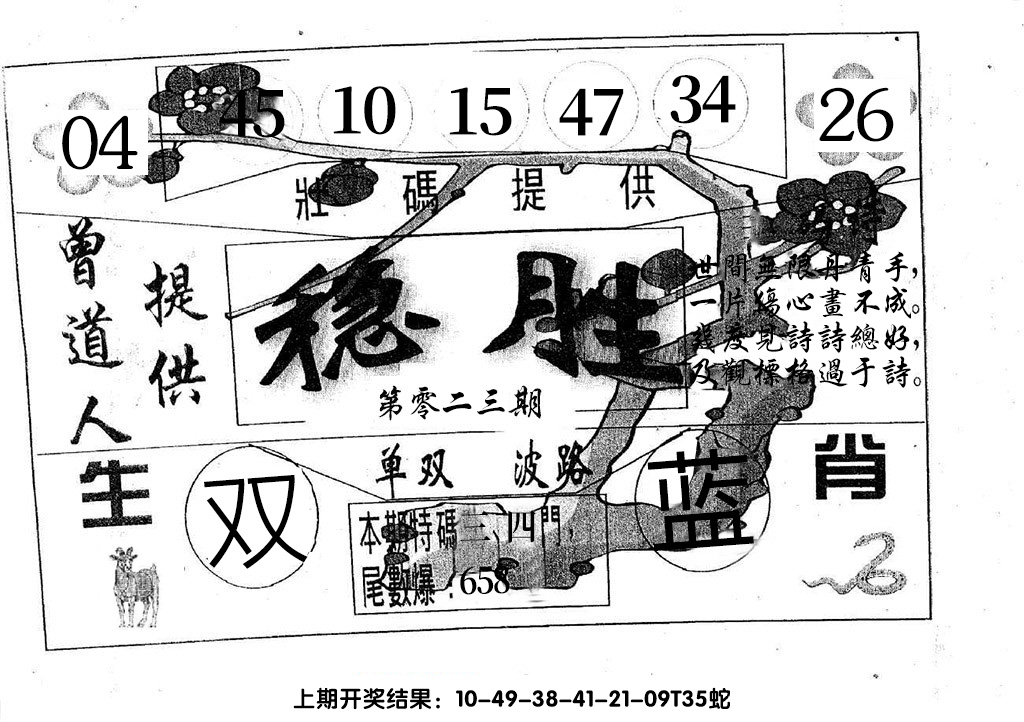 04 45 10 15 47 34 26
壯碼提供
特
曾道人
提供
稳胜
第零二三期
世間無限丹青手,
一片傷心畫不成。
幾度見詩詩總好,
及觀標格過于詩。
单双 波路
生肖
双
蓝
本期特碼三、四門,
尾數爆:658
上期开奖结果:10-49-38-41-21-09T35蛇